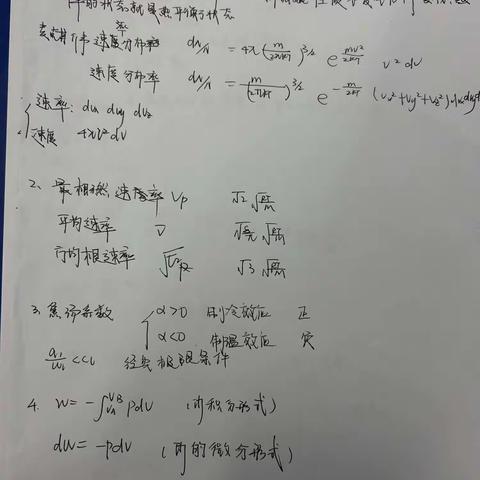 体的状态就是热平衡状态
麦克斯韦速率分布率 dN/N = 4π(m/2πkT)^3/2 e^-mv²/2kT v² dv
速度分布率 dN/N = (m/2πkT)^3/2 e^-m/2kT (vx²+vy²+vz²) dvx dvy
速率: dvx dvy dvz
速度 4πv²dv
2、最概然速率 Vp √2 √kT/m
平均速率 v̄ √8/π √kT/m
方均根速率 √v² √3 √kT/m
3. 焦汤系数 α>0 制冷效应 正
α<0 制温效应 负
<<1 经典极限条件
4. W = -∫VA VB pdV (功积分形式)
dW = -pdV (功的微分形式)